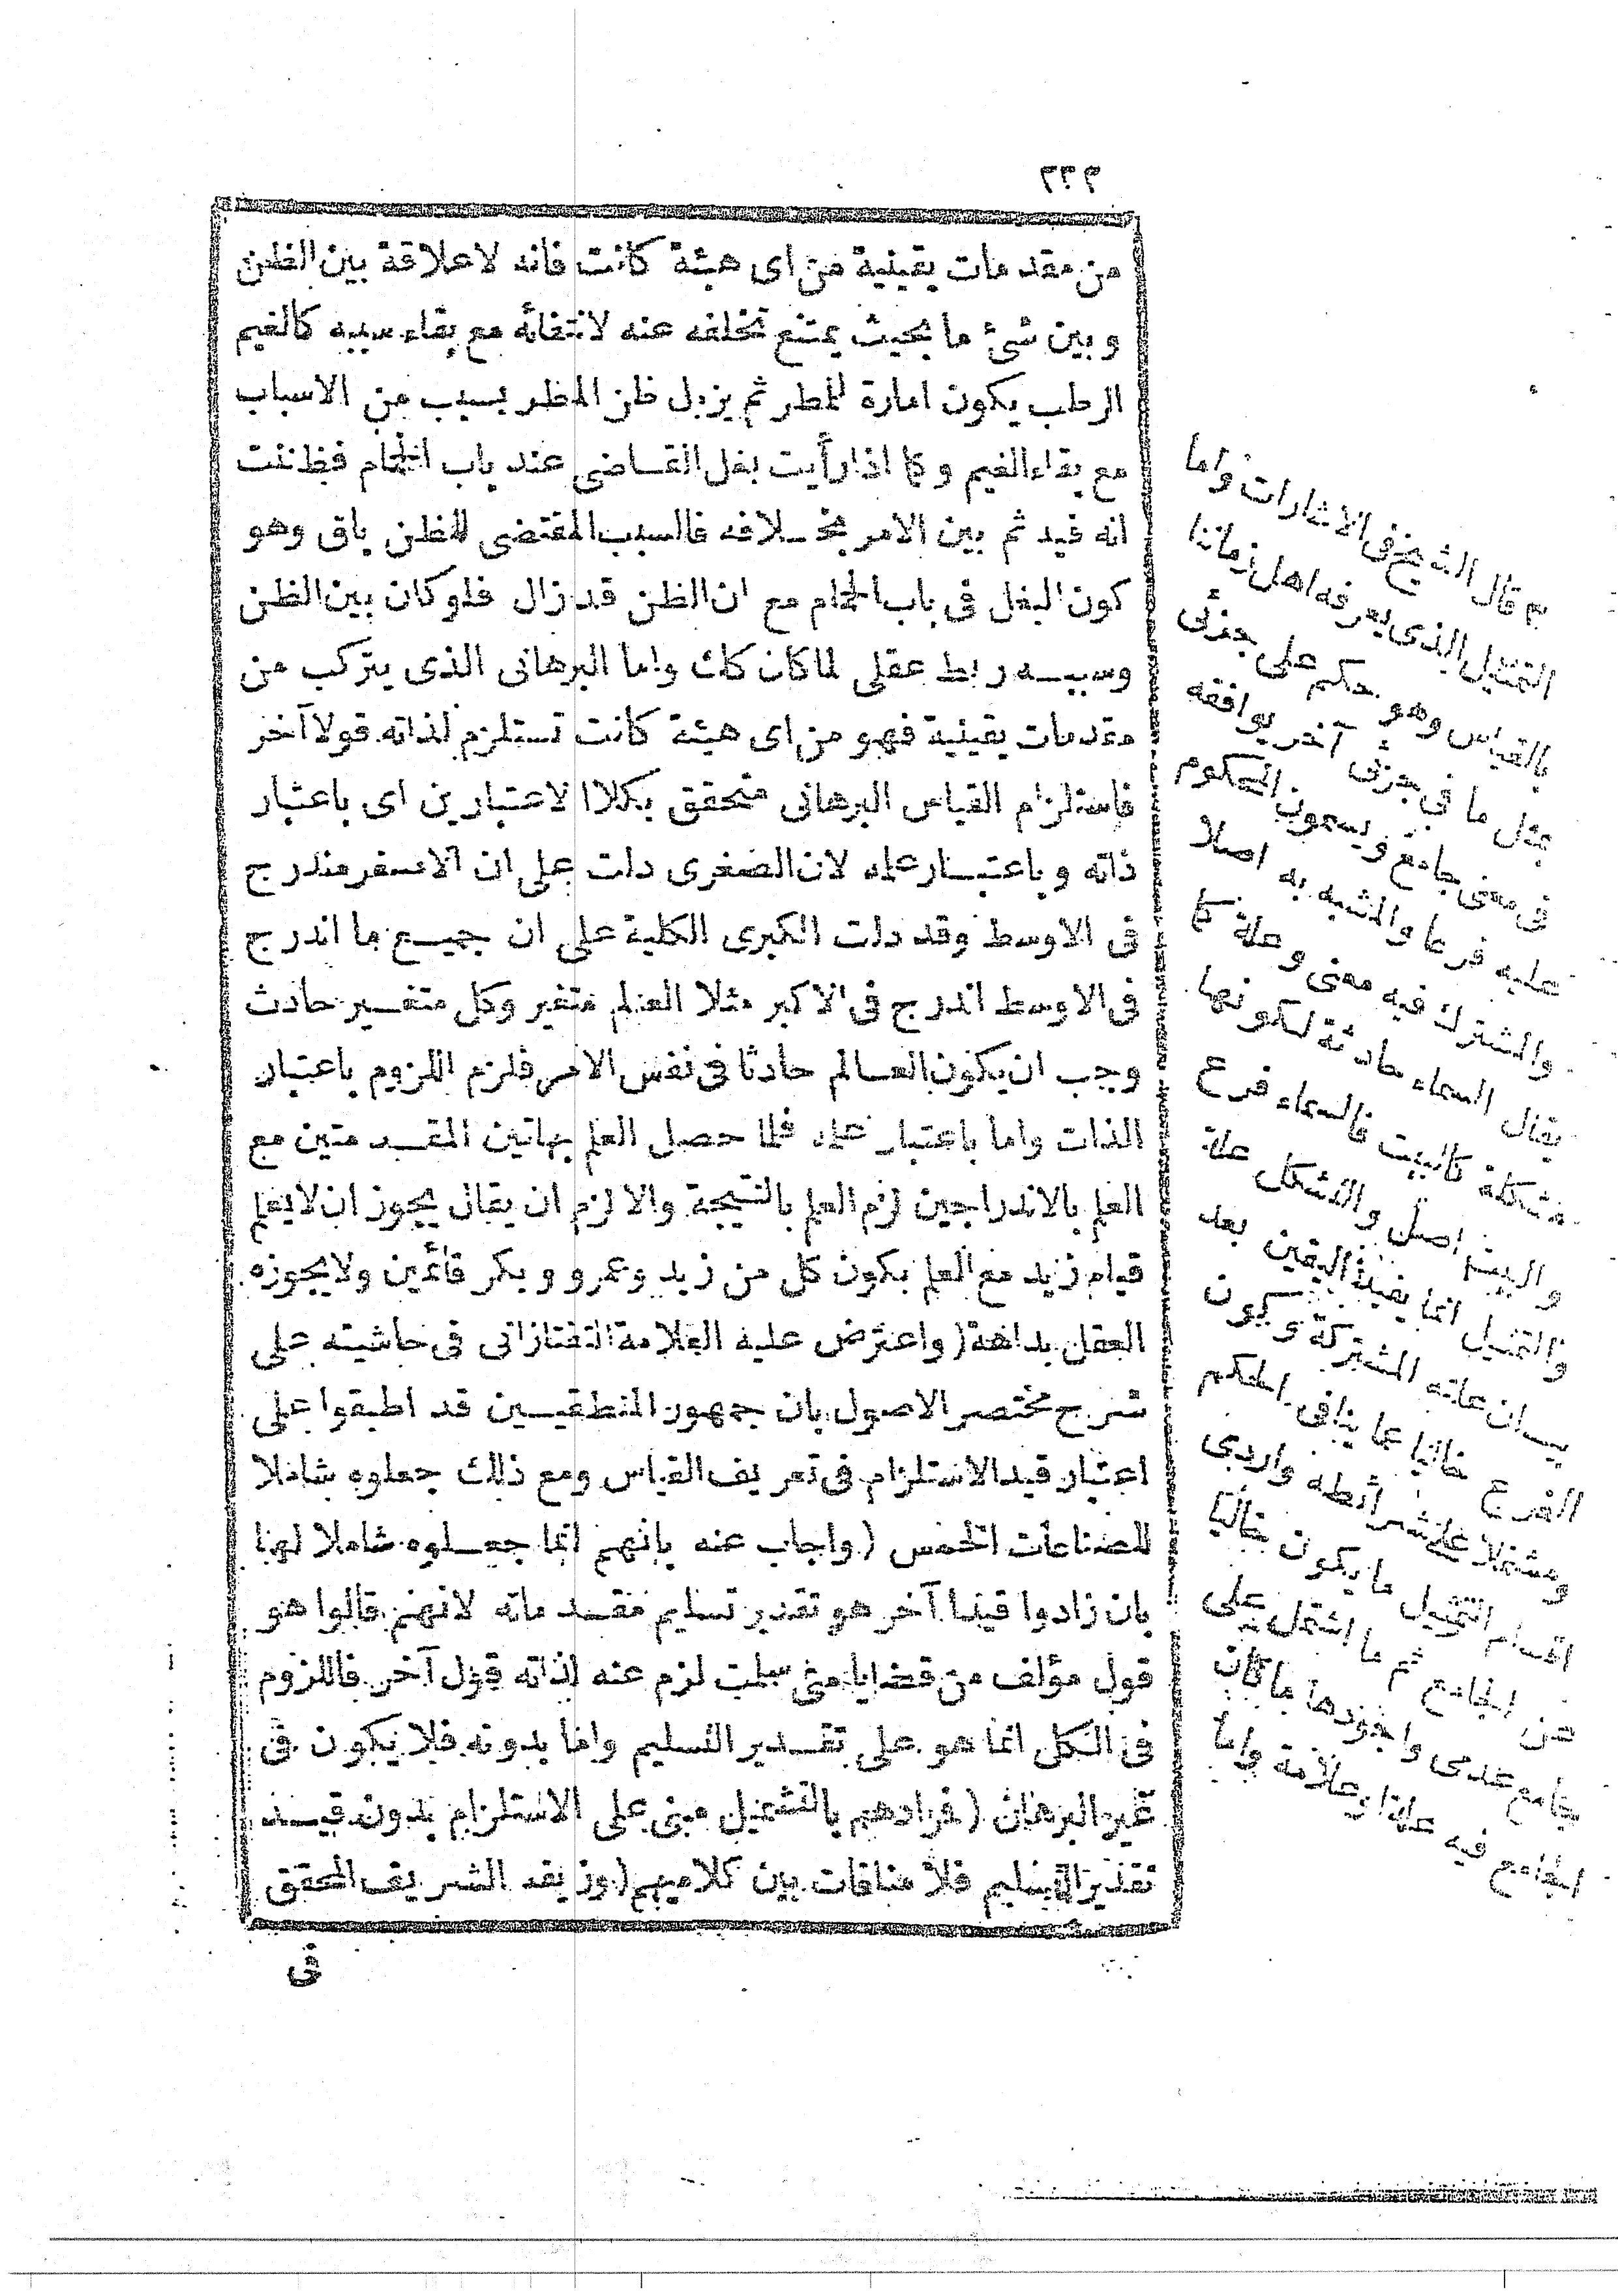 ٣٣٢
من مقدمات يقينية من اى هيئة كانت فانه لا علاقة بين الظن
وبين شئ ما بحيث يمتنع تخلفه عنه لانتفائه مع بقاء سببه كالغيم
الرطب يكون امارة للمطر ثم يزول ظن المطر بسبب من الاسباب
مع بقاء الغيم وكما اذا رأيت بغل القاضى عند باب الحمام فظننت
انه فيه ثم بين الامر بخلافه فالسبب المقتضى للظن باق وهو
كون البغل فى باب الحمام مع ان الظن قد زال فلو كان بين الظن
وسببه ربط عقلى لما كان كذلك واما البرهانى الذى يتركب من
مقدمات يقينية فهو من اى هيئة كانت تستلزم لذاته قولا آخر
فاستلزام القياس البرهانى متحقق بكلا الاعتبارين اى باعتبار
ذاته وباعتبار علمه لان الصغرى دلت على ان الاصغر مندرج
فى الاوسط وقد دلت الكبرى الكلية على ان جميع ما اندرج
فى الاوسط اندرج فى الاكبر مثلا العالم متغير وكل متغير حادث
وجب ان يكون العالم حادثا فى نفس الامر فلزم اللزوم باعتبار
الذات واما باعتبار علمه فلما حصل العلم بهاتين المقدمتين مع
العلم بالاندراجين لزم العلم بالنتيجة والا لزم ان يقال يجوز ان لا يعلم
قيام زيد مع العلم بكون كل من زيد وعمرو وبكر قائمين ولا يجوزه
العقل بداهة (واعترض عليه العلامة التفتازانى فى حاشيته على
شرح مختصر الاصول بان جمهور المنطقيين قد اطبقوا على
اعتبار قيد الاستلزام فى تعريف القياس ومع ذلك جعلوه شاملا
للصناعات الخمس (واجاب عنه بانهم انما جعلوه شاملا لها
بان زادوا قيدا آخر هو تقدير تسليم مقدماته لانهم قالوا هو
قول مؤلف من قضايا متى سلمت لزم عنه لذاته قول آخر فاللزوم
فى الكل انما هو على تقدير التسليم واما بدونه فلا يكون فى
غير البرهان (فرادهم بالتشميل مبنى على الاستلزام بدون قيد
تقدير التسليم فلا منافات بين كلاميهم (وزيفه الشريف المحقق
فى
م قال الشيخ فى الاشارات واما
التمثيل الذى يعرفه اهل زماننا
بالقياس وهو حكم على جزئى
بمثل ما فى جزئى آخر يوافقه
فى معنى جامع ويسمون المحكوم
عليه فرعا والمشبه به اصلا
والمشترك فيه معنى وعلة كما
يقال السماء حادثة لكونها
متشكلة كالبيت فالسماء فرع
والبيت اصل والتشكل علة
والتمثيل انما يفيد اليقين بعد
بيان علته المشتركة وكون
الفرع خاليا عما ينافى الحكم
ومشتملا على شرائطه واردى
اقسام التمثيل ما يكون خاليا
عن الجامع ثم ما اشتمل على
جامع عدمى واجودها ما كان
الجامع فيه علة او علامة واما